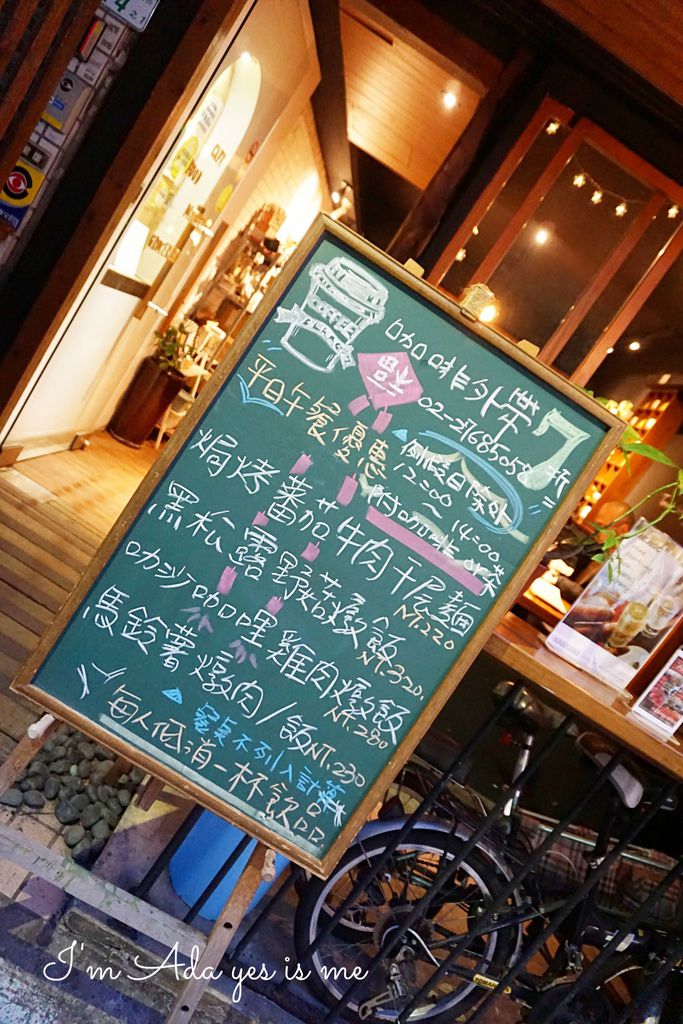 COFFEE
咖啡外帶7折
福
02-27685058
平日午餐優惠
▲例假日除外
12:00～14:00
附咖啡or茶
焗烤蕃茄牛肉千層麵
NT.220
黑松露野菇燉飯
NT.320.
叻沙咖哩雞肉燉飯
NT.280
馬鈴薯燉肉/飯NT.230
▲餐點不列入計算
每人低消一杯飲品
CAFE
I'm Ada yes is me